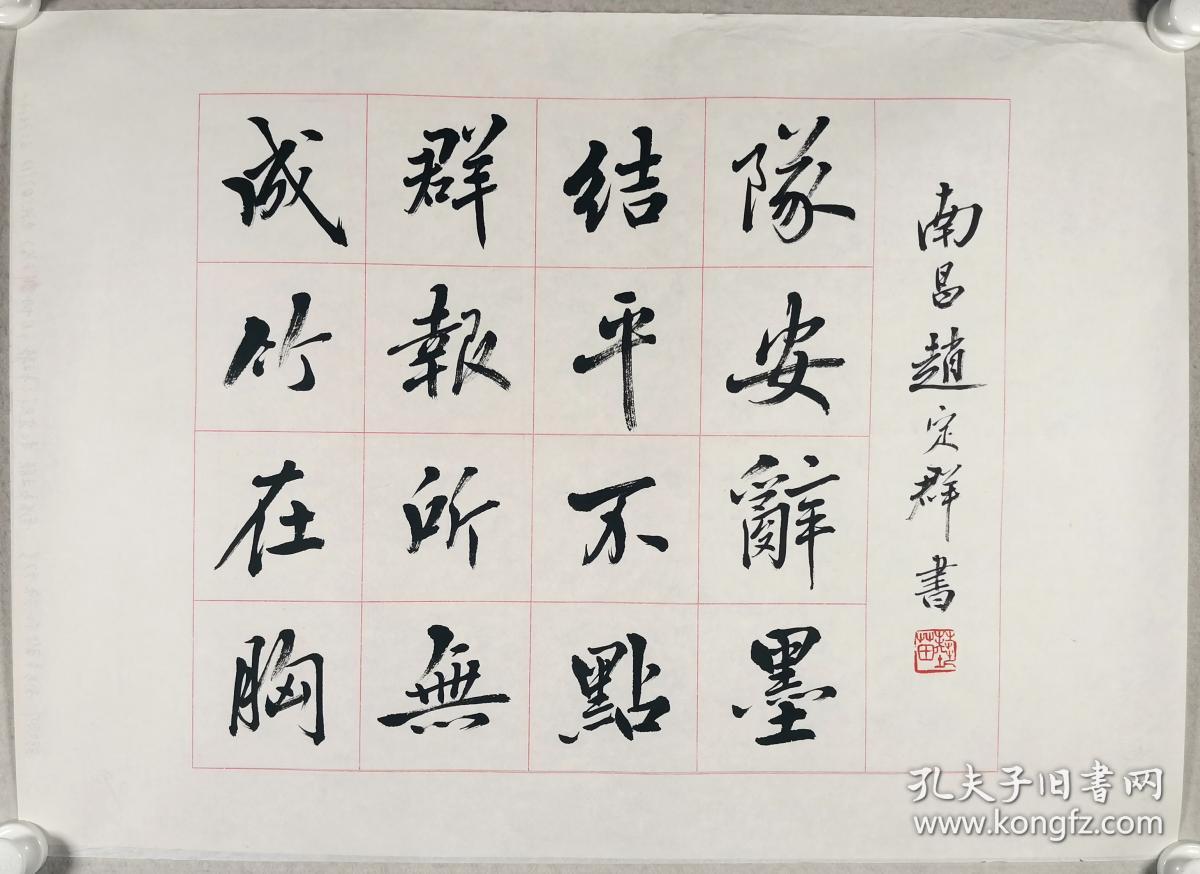 成群結隊
竹報平安
在所不辭
胸無點墨
南昌趙定群書
孔夫子旧书网
www.kongfz.com